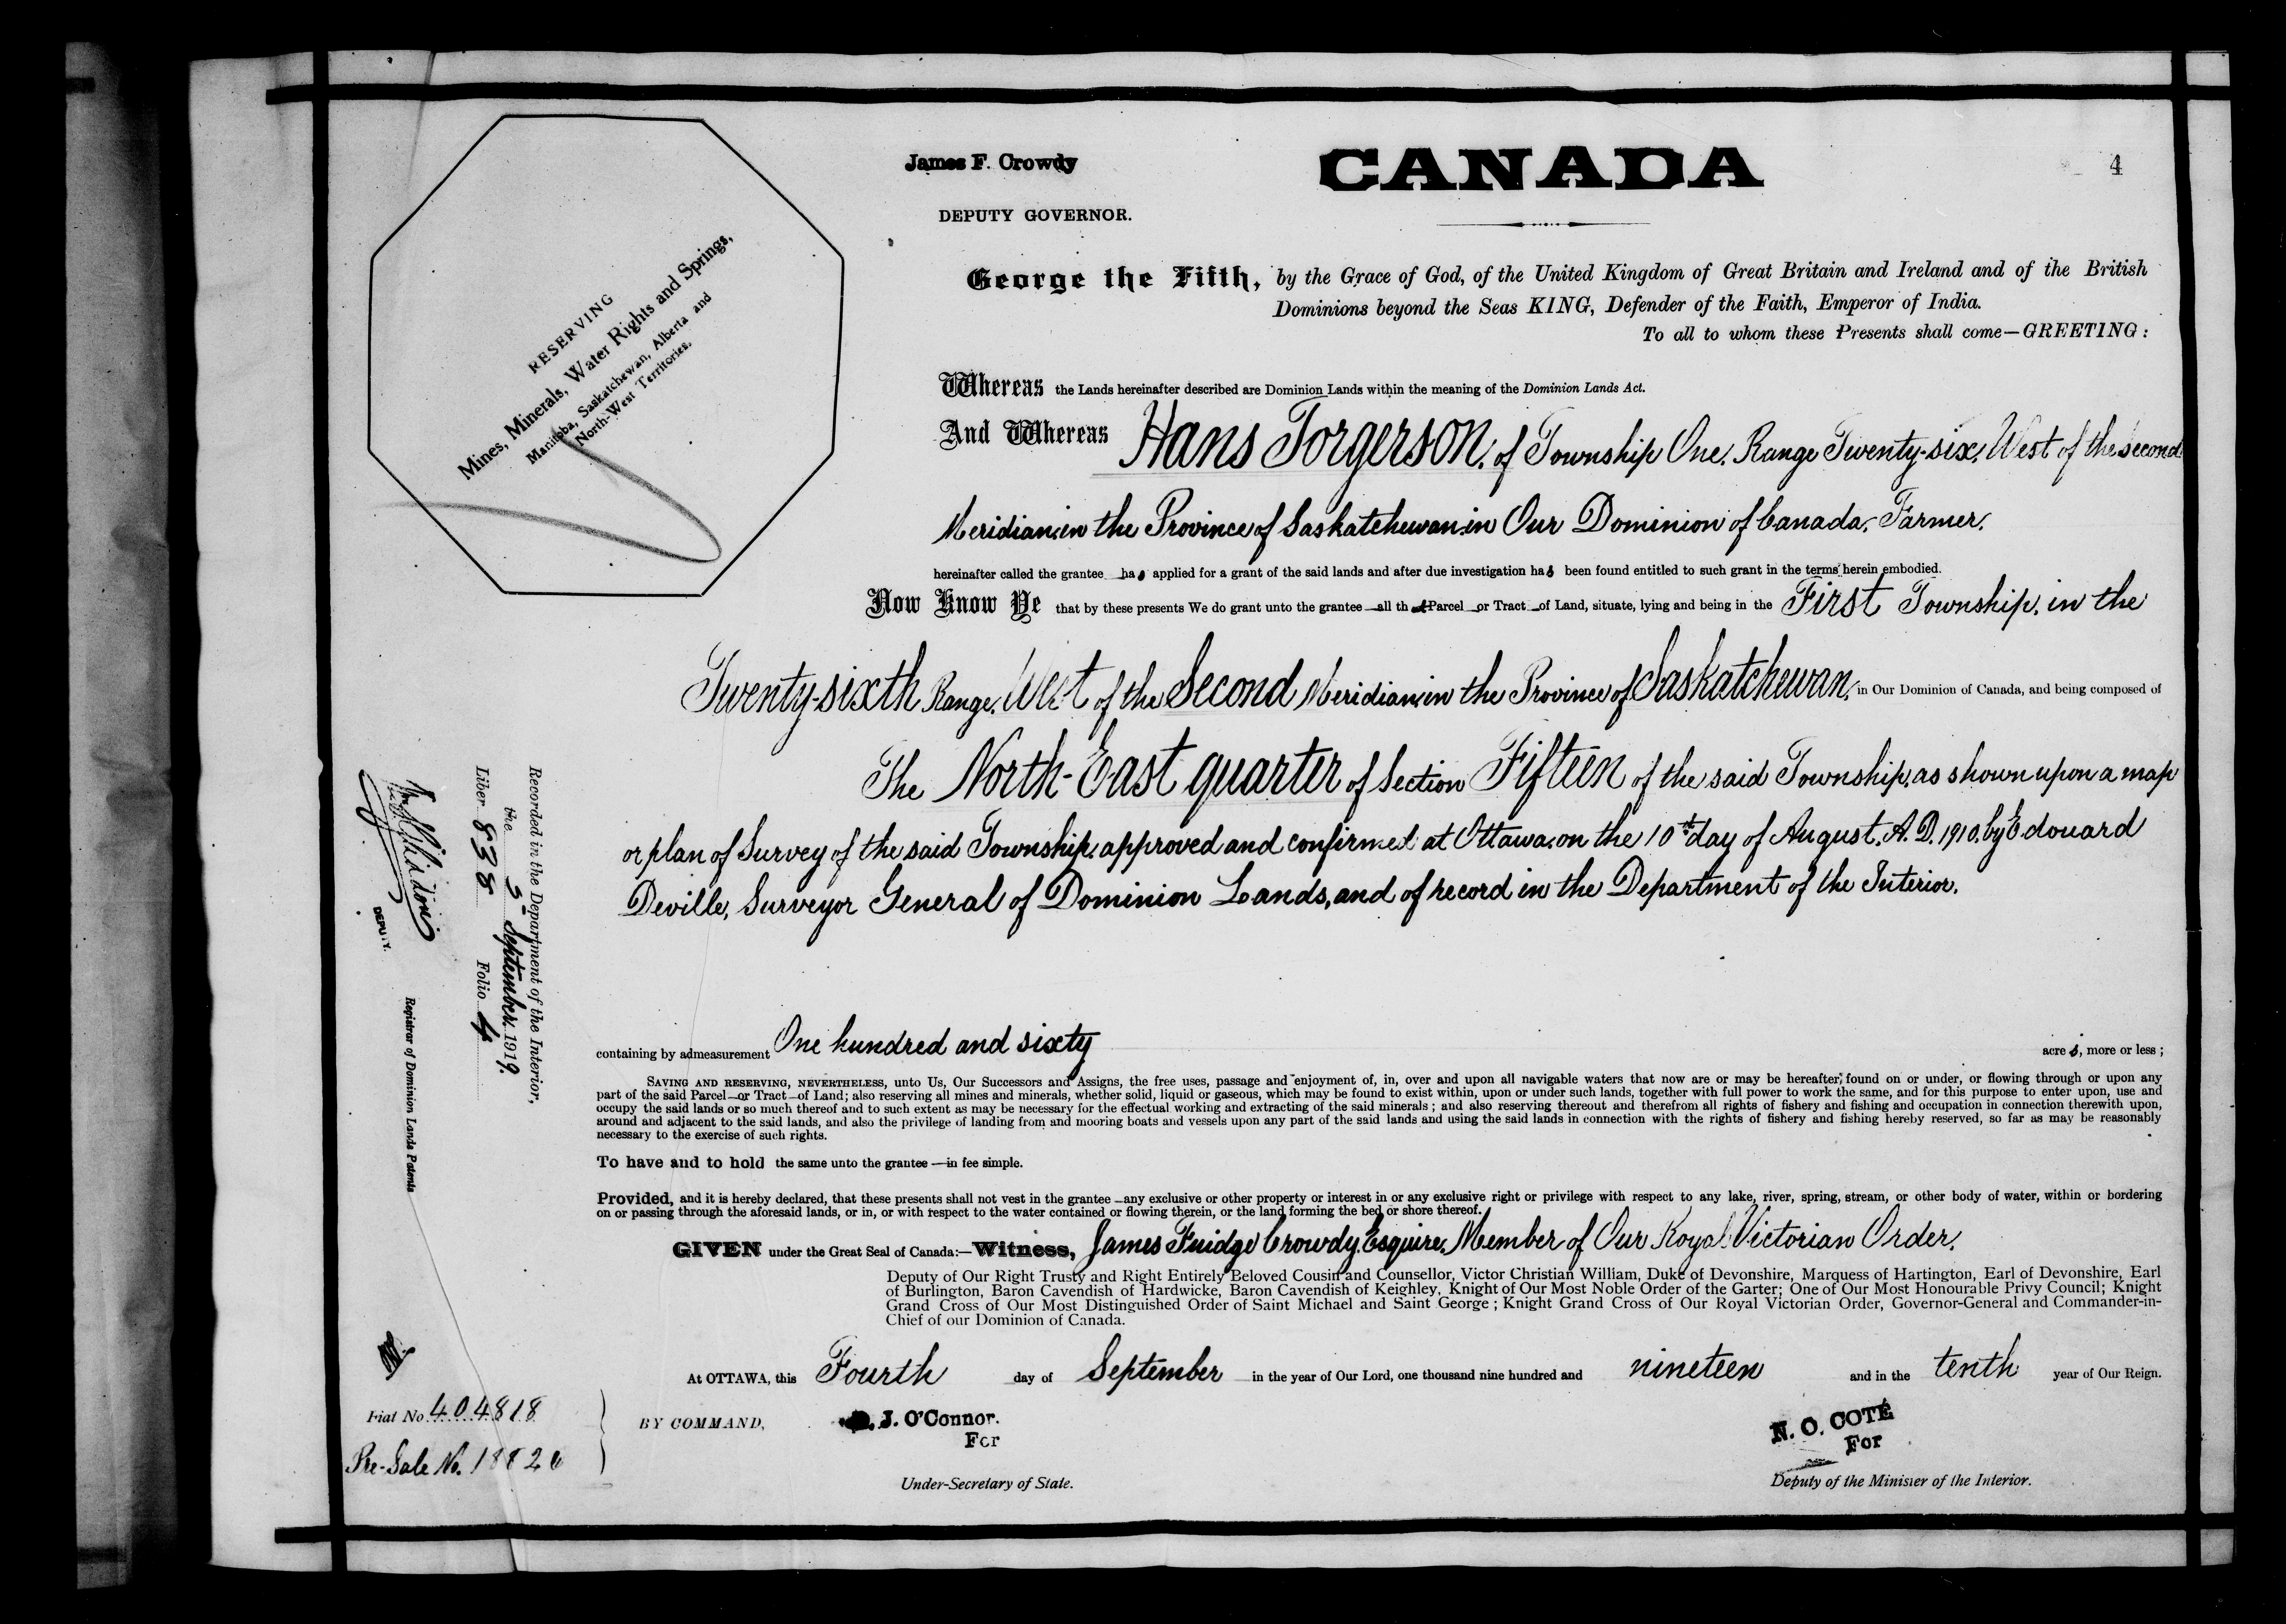 James F. Crowdy
DEPUTY GOVERNOR.
CANADA
4
RESERVING
Mines, Minerals, Water Rights and Springs,
Manitoba, Saskatchewan, Alberta and
North-West Territories.
George the Fifth, by the Grace of God, of the United Kingdom of Great Britain and Ireland and of the British
Dominions beyond the Seas KING, Defender of the Faith, Emperor of India.
To all to whom these Presents shall come—GREETING:
Whereas the Lands hereinafter described are Dominion Lands within the meaning of the Dominion Lands Act.
And Whereas Hans Torgerson, of Township One, Range Twenty-six, West of the second
Meridian, in the Province of Saskatchewan, in Our Dominion of Canada, Farmer,
hereinafter called the grantee has applied for a grant of the said lands and after due investigation has been found entitled to such grant in the terms herein embodied.
Now Know Ye that by these presents We do grant unto the grantee all that Parcel or Tract of Land, situate, lying and being in the First Township, in the
Twenty-sixth Range, West of the Second Meridian, in the Province of Saskatchewan, in Our Dominion of Canada, and being composed of
The North-East quarter of Section Fifteen of the said Township, as shown upon a map
or plan of Survey of the said Township, approved and confirmed at Ottawa, on the 10th day of August, A.D. 1910, by Edouard
Deville, Surveyor General of Dominion Lands, and of record in the Department of the Interior.
containing by admeasurement One hundred and sixty acres, more or less;
SAVING AND RESERVING, NEVERTHELESS, unto Us, Our Successors and Assigns, the free uses, passage and enjoyment of, in, over and upon all navigable waters that now are or may be hereafter, found on or under, or flowing through or upon any
part of the said Parcel or Tract of Land; also reserving all mines and minerals, whether solid, liquid or gaseous, which may be found to exist within, upon or under such lands, together with full power to work the same, and for this purpose to enter upon, use and
occupy the said lands or so much thereof and to such extent as may be necessary for the effectual working and extracting of the said minerals; and also reserving thereout and therefrom all rights of fishery and fishing and occupation in connection therewith upon,
around and adjacent to the said lands, and also the privilege of landing from and mooring boats and vessels upon any part of the said lands and using the said lands in connection with the rights of fishery and fishing hereby reserved, so far as may be reasonably
necessary to the exercise of such rights.
To have and to hold the same unto the grantee in fee simple.
Provided, and it is hereby declared, that these presents shall not vest in the grantee any exclusive or other property or interest in or any exclusive right or privilege with respect to any lake, river, spring, stream, or other body of water, within or bordering
on or passing through the aforesaid lands, or in, or with respect to the water contained or flowing therein, or the land forming the bed or shore thereof.
GIVEN under the Great Seal of Canada:—Witness, James Fuidge Crowdy, Esquire, Member of Our Royal Victorian Order,
Deputy of Our Right Trusty and Right Entirely Beloved Cousin and Counsellor, Victor Christian William, Duke of Devonshire, Marquess of Hartington, Earl of Devonshire, Earl
of Burlington, Baron Cavendish of Hardwicke, Baron Cavendish of Keighley, Knight of Our Most Noble Order of the Garter; One of Our Most Honourable Privy Council; Knight
Grand Cross of Our Most Distinguished Order of Saint Michael and Saint George; Knight Grand Cross of Our Royal Victorian Order, Governor-General and Commander-in-
Chief of our Dominion of Canada.
At OTTAWA, this Fourth day of September in the year of Our Lord, one thousand nine hundred and nineteen and in the tenth year of Our Reign.
BY COMMAND,
J. O'Connor.
For
Under-Secretary of State.
N. O. COTÉ
For
Deputy of the Minister of the Interior.
Recorded in the Department of the Interior,
the 5 September 1919.
Liber 838 Folio 4
DEPUTY.
Registrar of Dominion Lands Patents
Fiat No. 404818
Pre-Sale No.